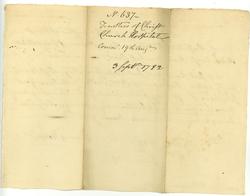 N. 637-
Trustees of Christ
Church Hospital
Comm 19th Aug
3 Sept. 1782